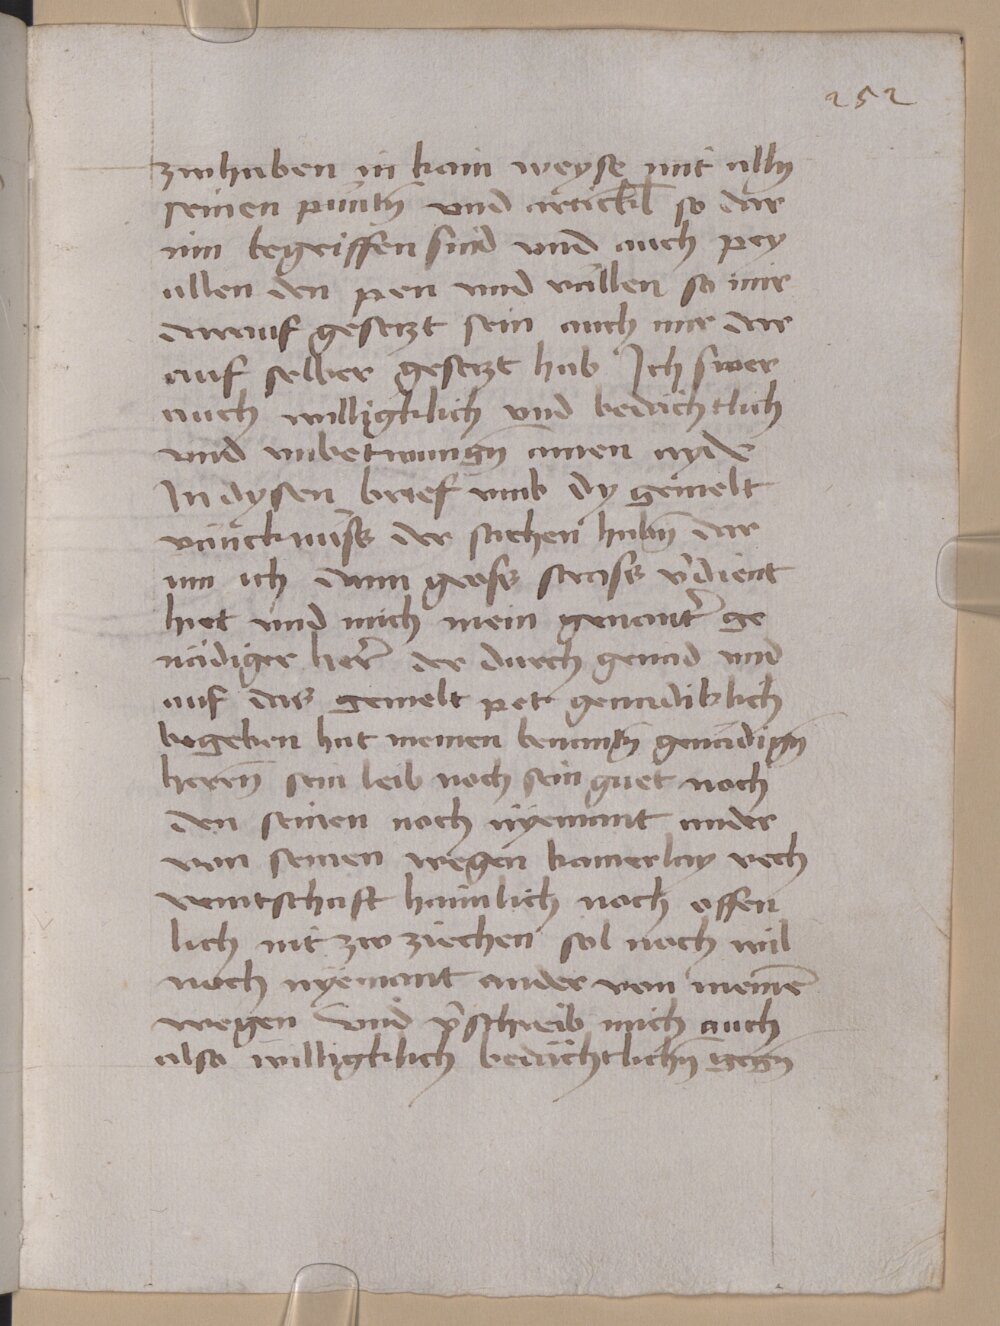 252
zwhaben in kain weyse mit alln
seinen puntn̄ vnd artickl so dar
inn begriffen sind vnd auch pey
allen den pen vnd vällen so mir
darauf gesetzt sein auch mir dar
auf selber gesetzt hab Ich swer
auch willigklich vnd bedächtlich
vnd vnbetwungn̄ ainen ayde
In dysen brief vmb dy gemelt
väncknüss der sachen habn̄ dar
inn ich dann gross straff v̓dient
hiet vnd mich mein genant̓ ge
nädiger her̓ der durch genad vnd
auf das gemelt pet genadiklich
begeben hat meinen benantn̄ genädign̄
herrn̄ sein leib noch sein guet noch
den seinen noch nyemant ander
von seinen wegen kainerlay vech
veintschaft haimlich noch offen
lich nit zw ziechen sol noch wil
noch nyemant ander von meinē
wegen Vnd v̓schreib mich auch
also willigklich bedächtlichn̄ gegn̄